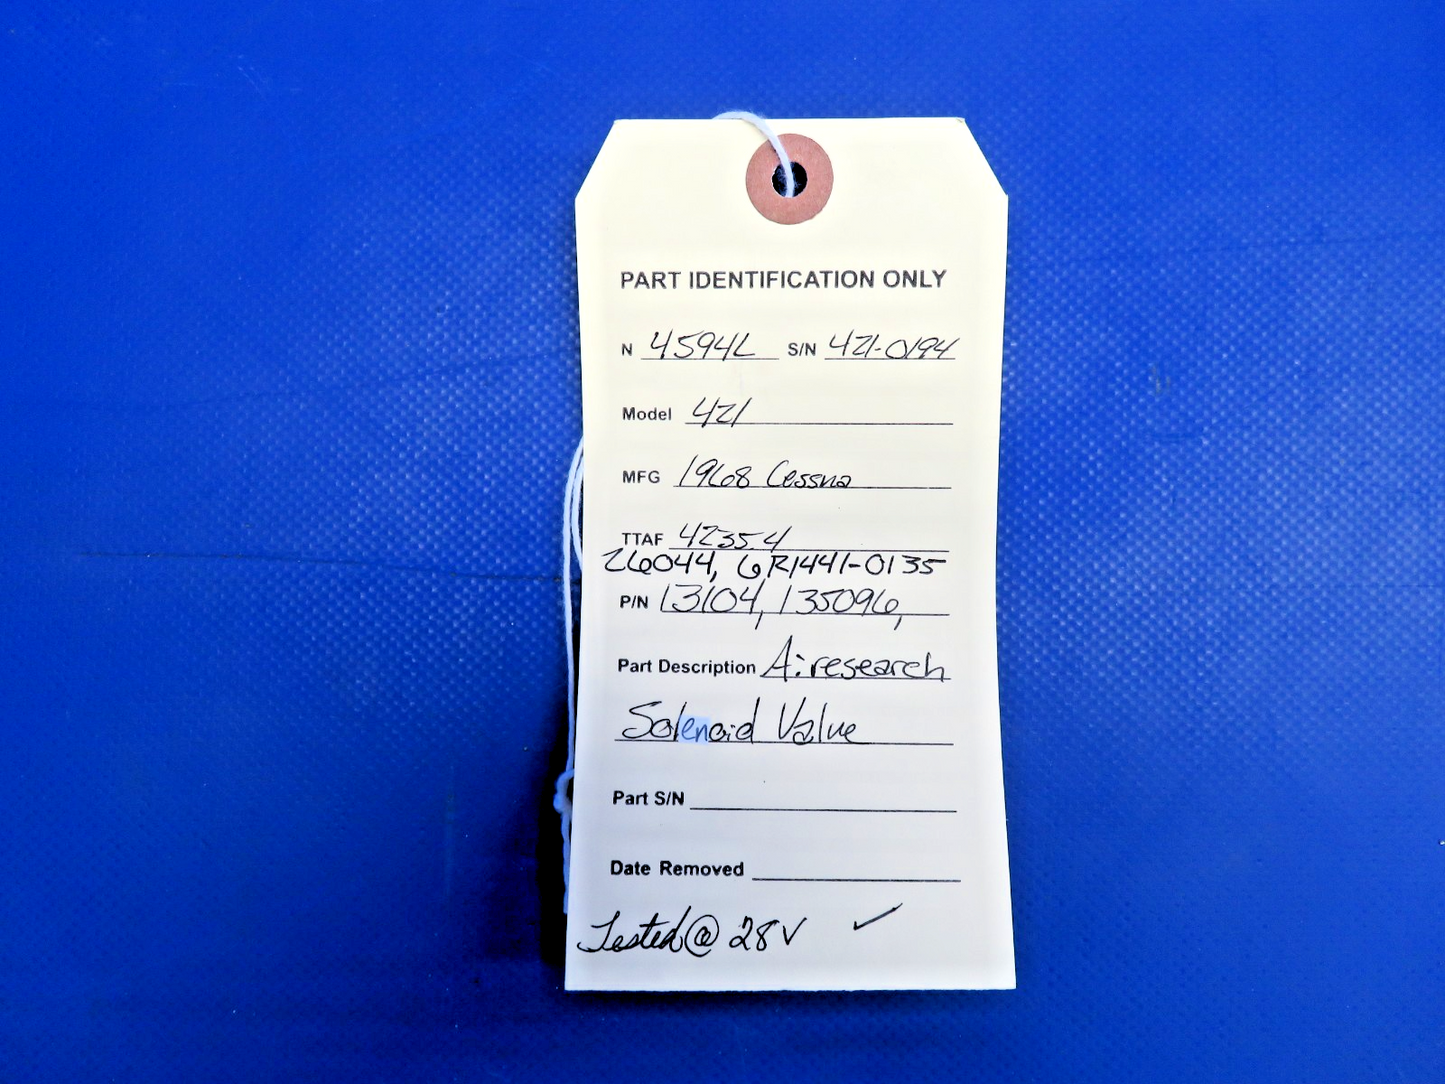 PART IDENTIFICATION ONLY
N 4594L S/N 421-0194
Model 421
MFG 1968 Cessna
TTAF 4235.4
26044, 6R1441-0135
P/N 13104, 135096,
Part Description Airesearch
Solenoid Valve
Part S/N
Date Removed
Tested @ 28V ✓